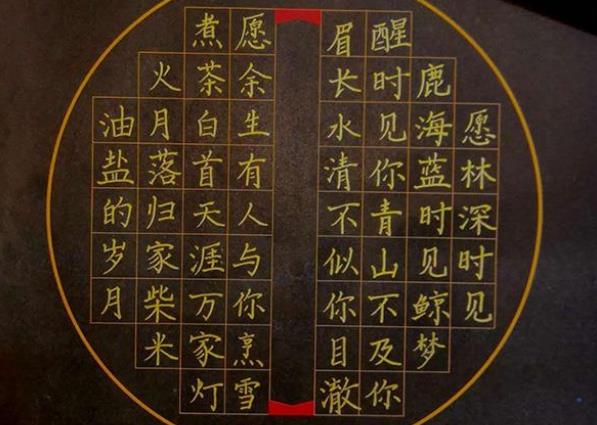 愿林深时见
鹿海蓝时见鲸梦
醒时见你青山不及你
眉长水清不似你目澈
愿余生有人与你烹雪
煮茶白首天涯万家灯
火月落归家柴米
油盐的岁月